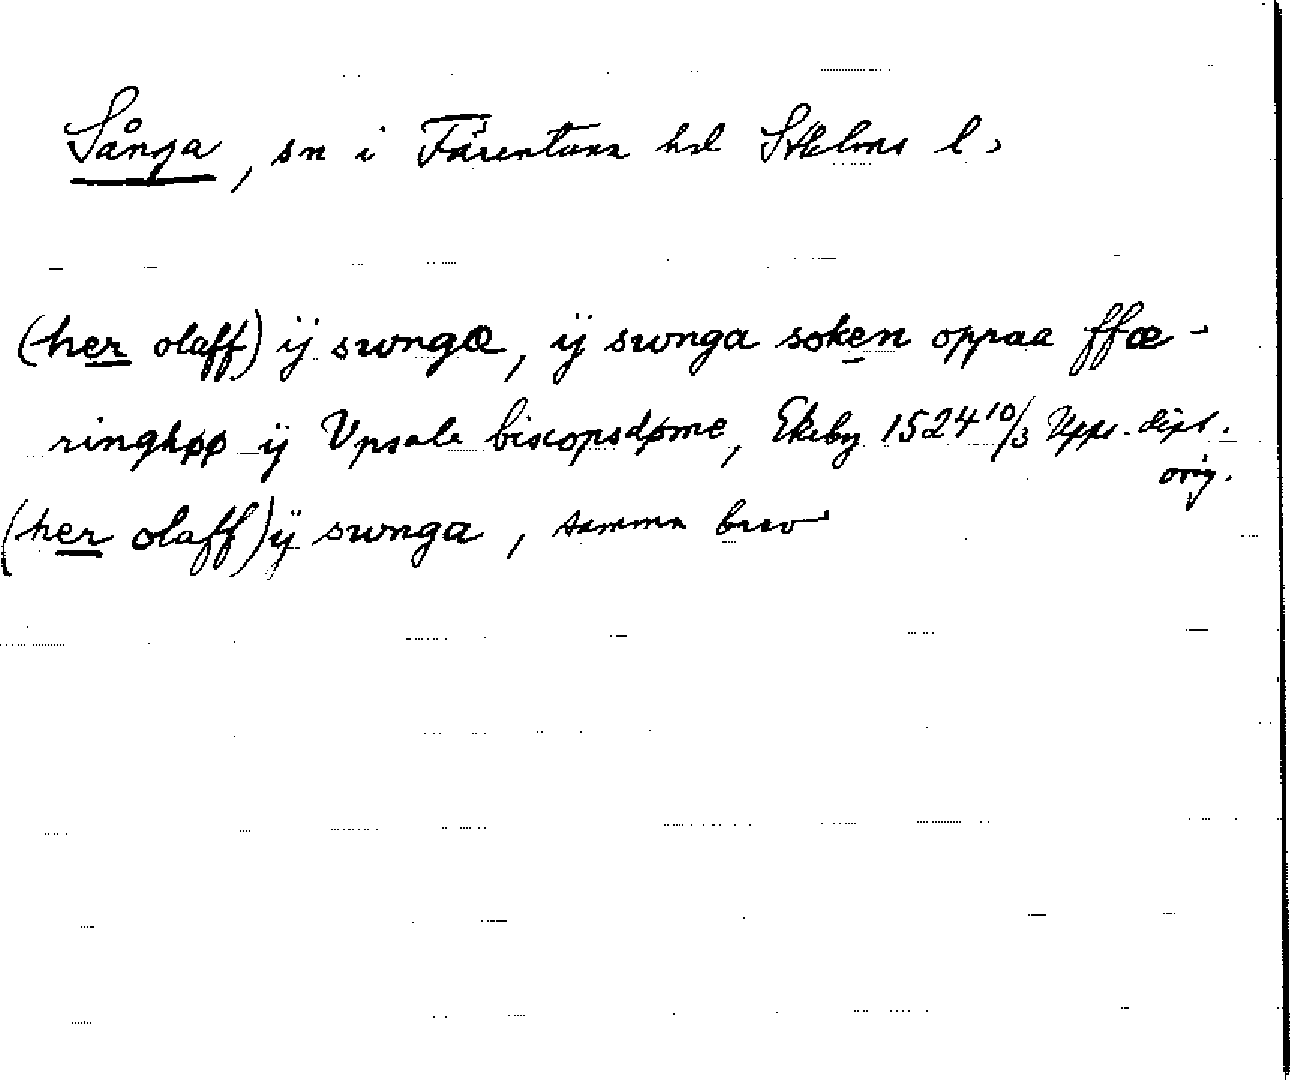 Sånga, sn i Färentuna hd Sthlms l.
(her olaff) ÿ swngæ, ÿ swnga soken oppaa ffæ-
ringhøø ÿ Vpsale biscopsdøme, Ekeby 1524 10/3 Upps. dipl.
orig.
(her olaff) ÿ swnga, samma brev